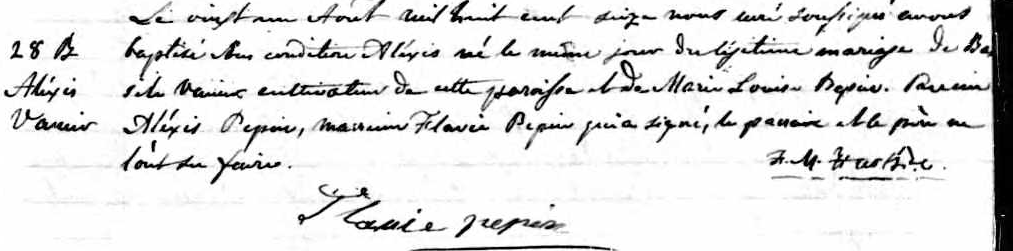 Le vingt un Août mil huit cent seize nous curé soussigné avons
28 B baptisé sous condition Aléxis né le même jour du légitime mariage de Ba
Aléxis sile Vanier cultivateur de cette paroisse et de Marie Louise Pepin. Parrain
Vanier Aléxis Pepin, marraine Flavie Pepin qui a signé, le parrain et le père ne
l'ont su faire.
Flavie pepin